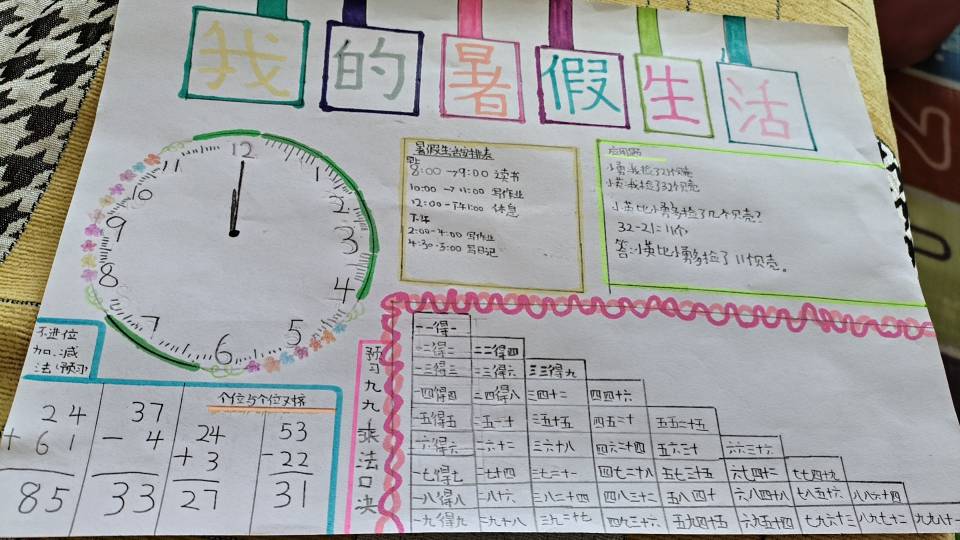 我的暑假生活
12
1
2
3
4
5
6
7
8
9
10
11
暑假生活安排表
8:00→9:00 读书
10:00→11:00 写作业
12:00-下午1:00 休息
下午
2:00-4:00 写作业
4:30-5:00 写日记
应用题
小勇:我捡了21个贝壳
小英:我捡了32个贝壳
小英比小勇多捡了几个贝壳?
32-21=11个
答:小英比小勇多捡了11个贝壳。
不进位
加.减
法(预习)
个位与个位对挤
24
+61
85
37
-4
33
24
+3
27
53
-22
31
预习九九乘法口决
一一得一
一二得二 二二得四
一三得三 二三得六 三三得九
一四得四 二四得八 三四十二 四四十六
一五得五 二五一十 三五十五 四五二十 五五二十五
一六得六 二六十二 三六十八 四六二十四 五六三十 六六三十六
一七得七 二七十四 三七二十一 四七二十八 五七三十五 六七四十二 七七四十九
一八得八 二八十六 三八二十四 四八三十二 五八四十 六八四十八 七八五十六 八八六十四
一九得九 二九十八 三九二十七 四九三十六 五九四十五 六九五十四 七九六十三 八九七十二 九九八十一